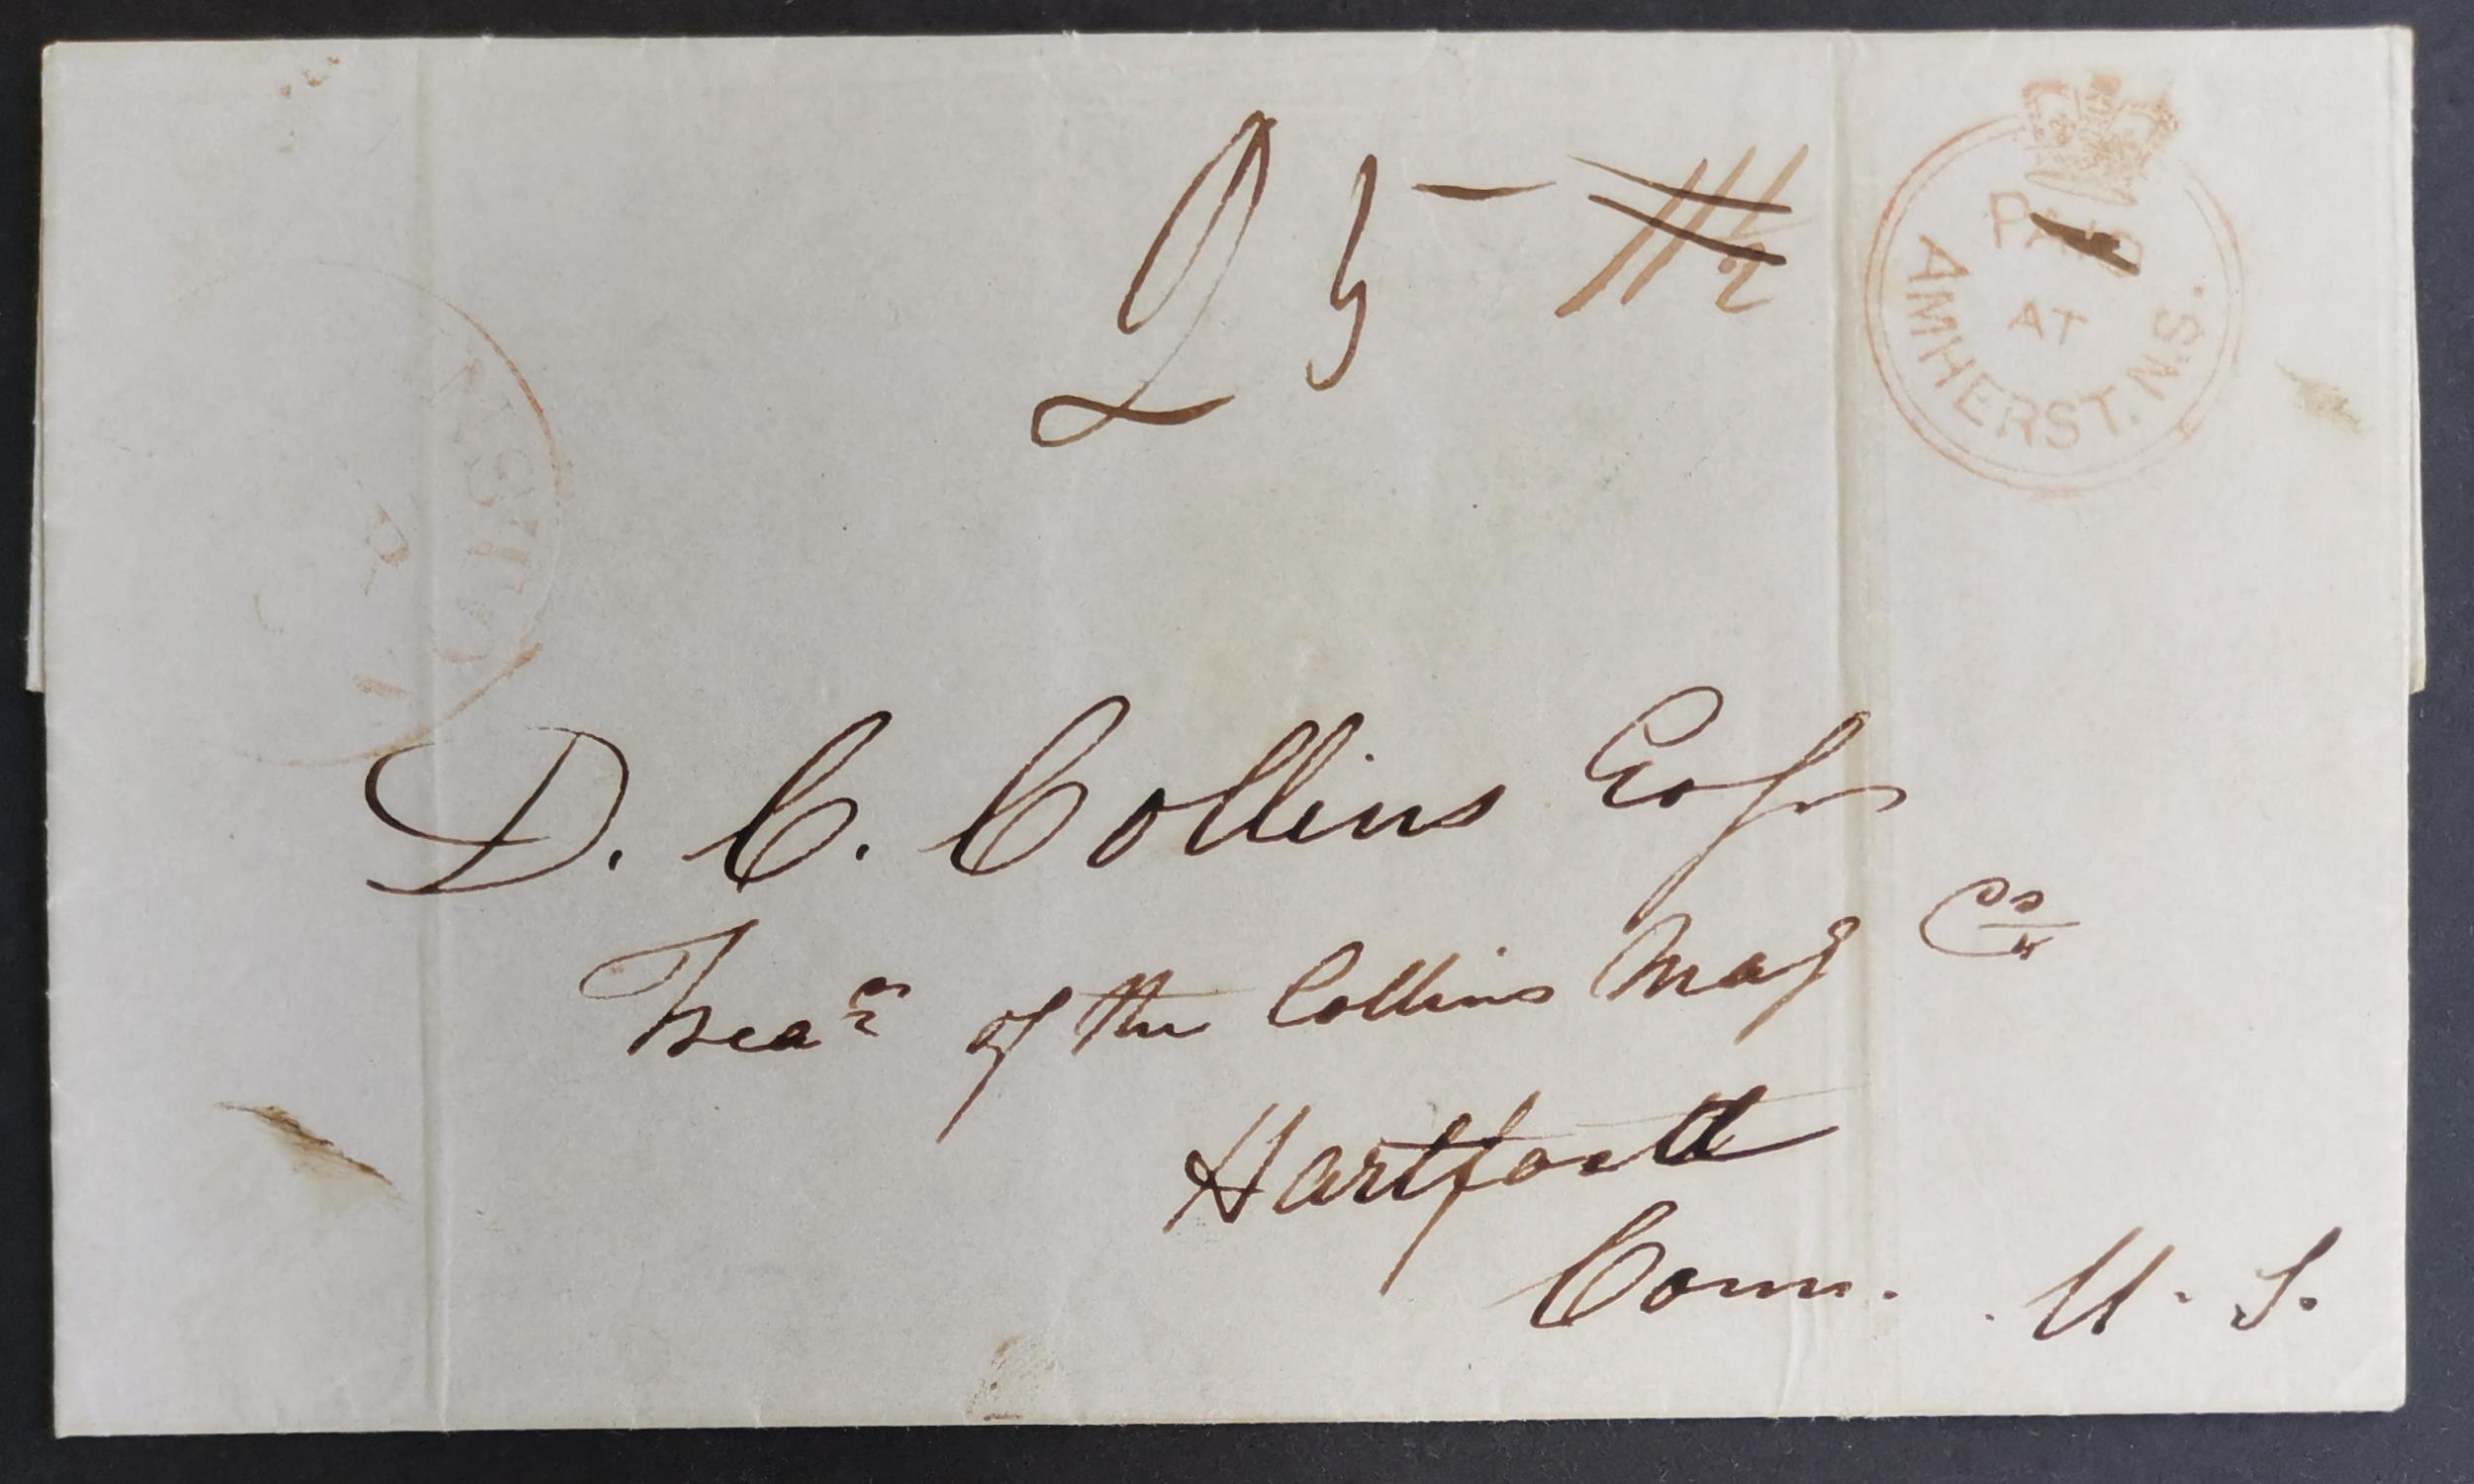 25
11½
PAID
AT
AMHERST. N.S.
D. C. Collins Esqr
Trear of the Collins Maf Co
Hartford
Conn. U. S.